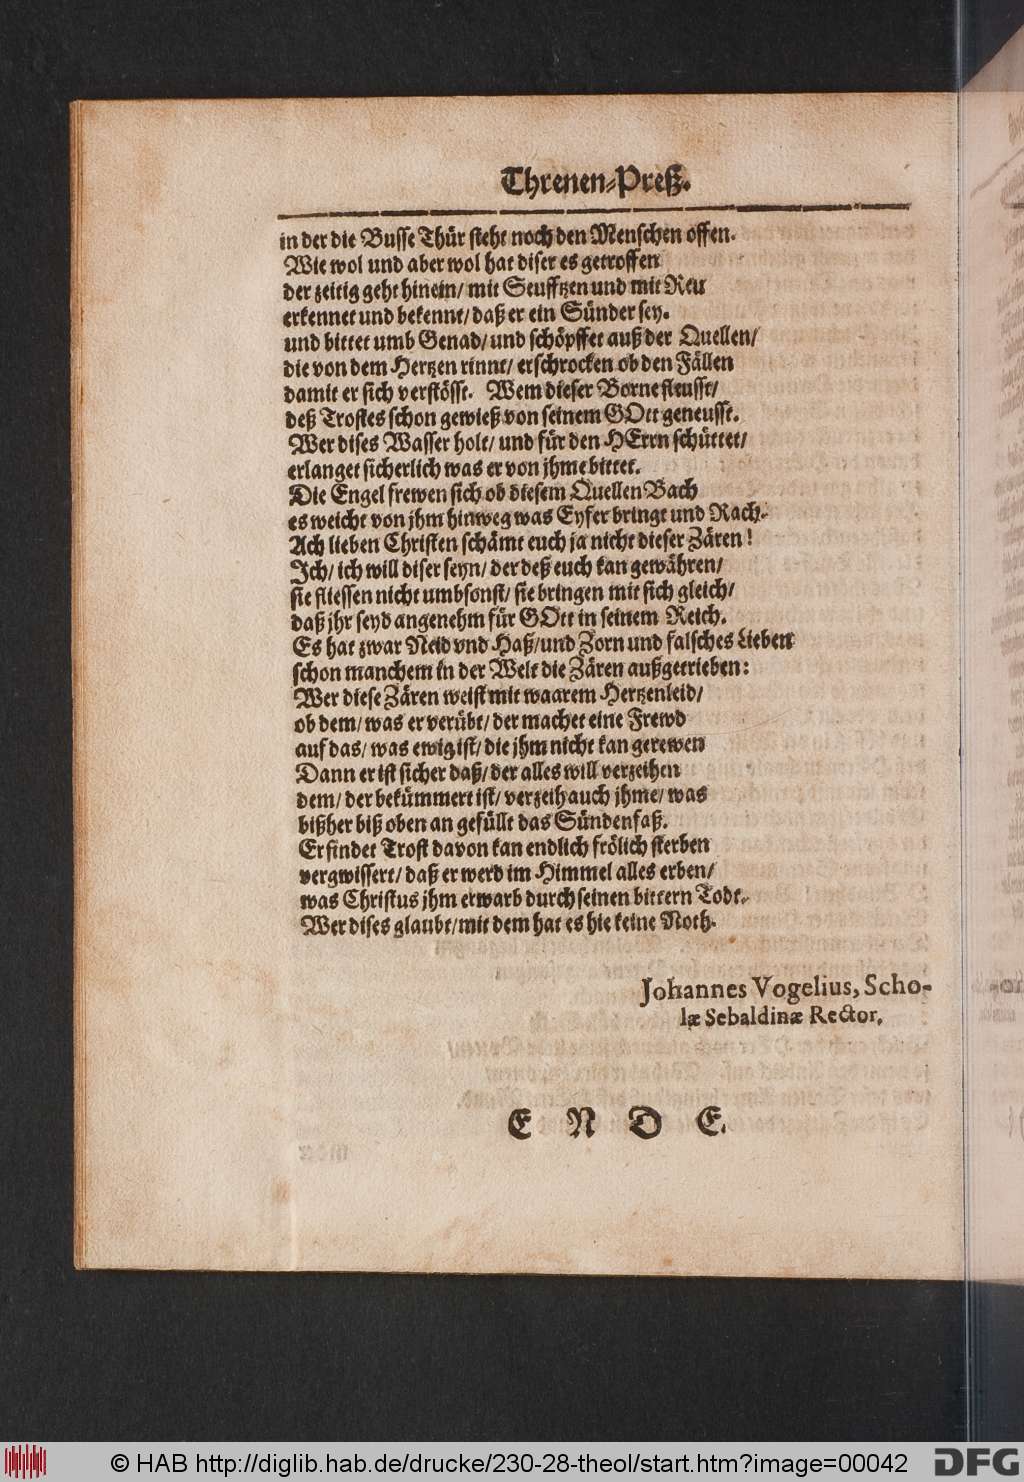 Threnen-Preß.
in der die Busse Thür steht noch den Menschen offen.
Wie wol und aber wol hat diser es getroffen
der zeitig geht hinein/ mit Seufftzen und mit Reu
erkennet und bekennt/ daß er ein Sünder sey.
und bittet umb Genad/ und schöpffet auß der Quellen/
die von dem Hertzen rinnt/ erschrocken ob den Fällen
damit er sich verstösst. Wem dieser Borne fleusst/
deß Trostes schon gewieß von seinem GOtt geneusst.
Wer dises Wasser holt/ und für den HErrn schüttet/
erlanget sicherlich was er von jhme bittet.
Die Engel frewen sich ob diesem Quellen Bach
es weicht von jhm hinweg was Eyfer bringt und Rach.
Ach lieben Christen schämt euch ja nicht dieser Zären!
Ich/ ich will diser seyn/ der deß euch kan gewähren/
sie fliessen nicht umbsonst/ sie bringen mit sich gleich/
daß jhr seyd angenehm für GOtt in seinem Reich.
Es hat zwar Neid vnd Haß/ und Zorn und falsches Lieben
schon manchem in der Welt die Zären außgetrieben:
Wer diese Zären weist mit waarem Hertzenleid/
ob dem/ was er verübt/ der machet eine Frewd
auf das/ was ewig ist/ die jhm nicht kan gerewen
Dann er ist sicher daß/ der alles will verzeihen
dem/ der bekümmert ist/ verzeih auch jhme/ was
bißher biß oben an gefüllt das Sündenfaß.
Er findet Trost davon kan endlich frölich sterben
vergwissert/ daß er werd im Himmel alles erben/
was Christus jhm erwarb durch seinen bittern Todt.
Wer dises glaubt/ mit dem hat es hie keine Noth.
Johannes Vogelius, Scho-
læ Sebaldinæ Rector,
E N D E.
© HAB http://diglib.hab.de/drucke/230-28-theol/start.htm?image=00042
DFG